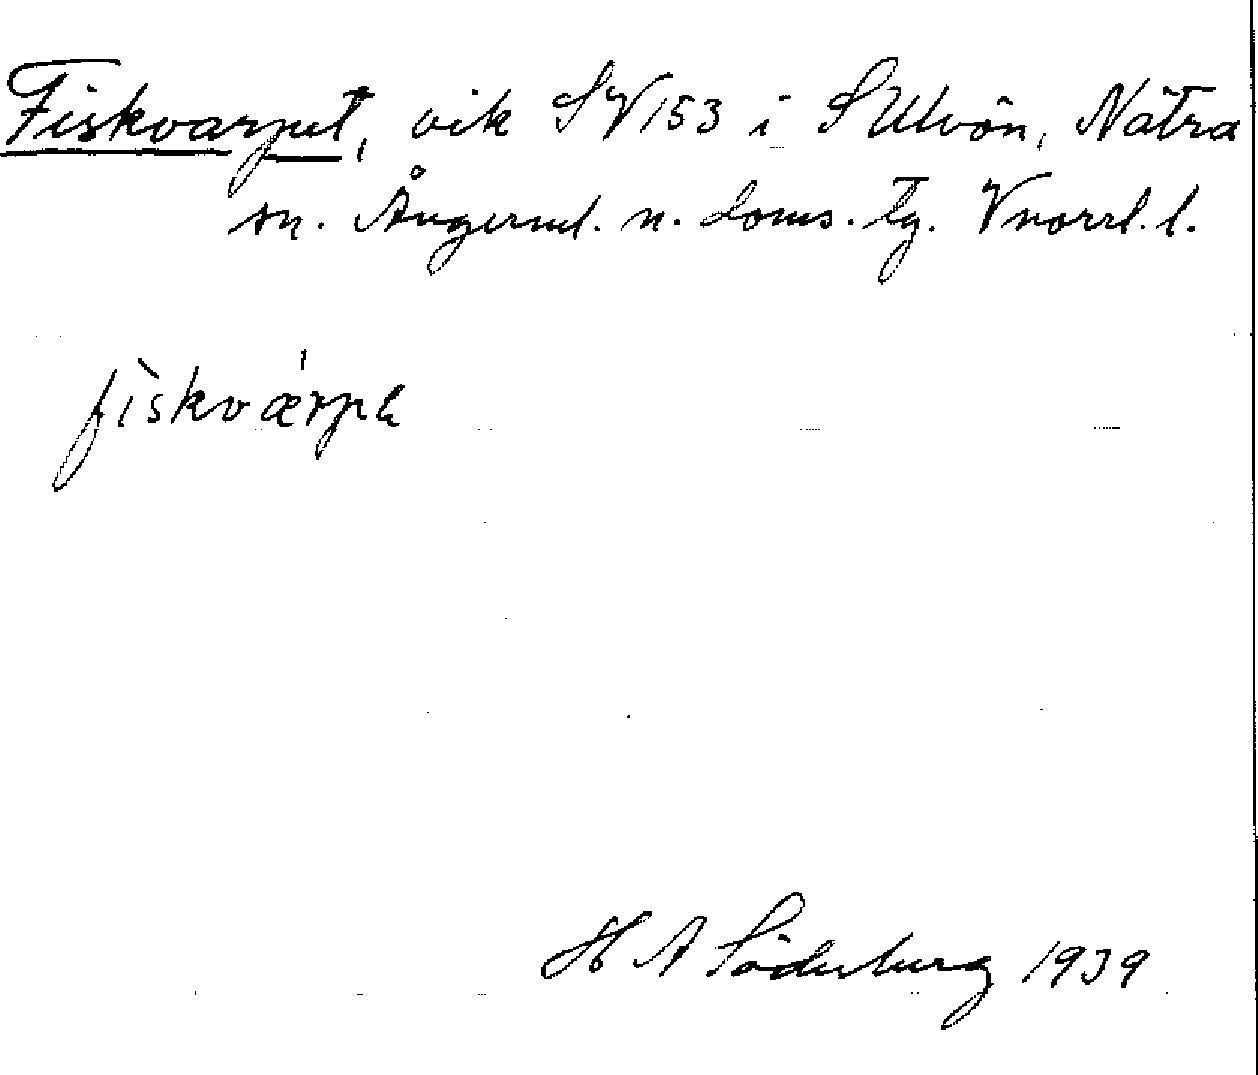 Fiskvarpet, vik SV153 i S Ulvön, Nätra
sn. Ångerml. n. doms. tg. Vnorrl. l.
fìskvær'pa
H A Söderberg 1939